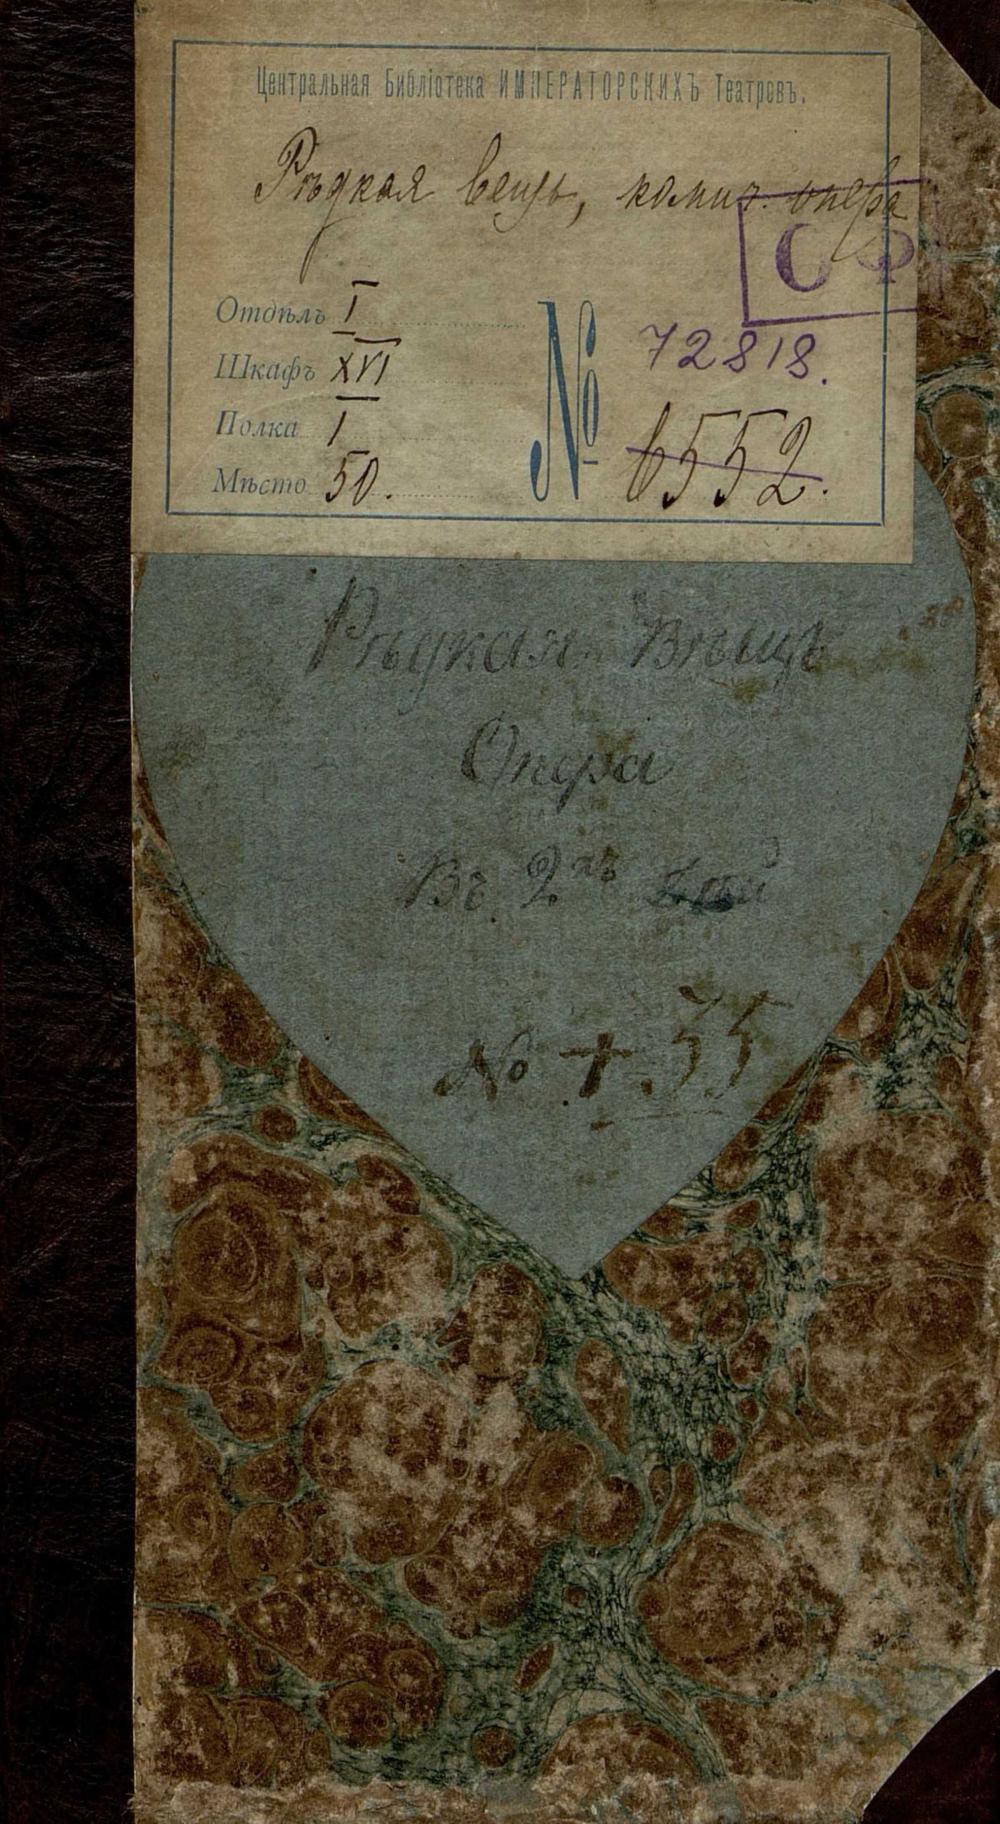 Центральная Библіотека ИМПЕРАТОРСКИХЪ Театровъ.
Рѣдкая вещь, комич. опера
СФ
Отдѣлъ I
Шкафъ XVI
Полка I
Мѣсто 50.
№ 72818.
6552.
Рѣдкая вѣщь
Опера
Въ 2хъ
№ + .55